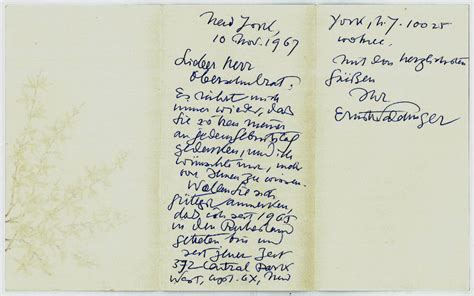 New York,
10 Nov. 1967
Lieber Herr
Oberschulrat,
Es rührt mich
immer wieder, daß
Sie so treu meines
an jedem Geburtstag
gedenken, und ich
wünschte nur, mehr
von Ihnen zu wissen.
Wollen Sie sich
gütigst anmerken,
daß ich seit 1965
in den Ruhestand
getreten bin und
seit jener Zeit
372 Central Park
West, Apt. 6X, New
York, N.Y. 10025
wohne.
Mit den herzlichsten
Grüßen
Ihr
Ernst Waldinger